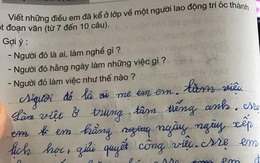 Viết những điều em đã kể ở lớp về một người lao động trí óc thành
t đoạn văn (từ 7 đến 10 câu).
Gợi ý :
- Người đó là ai, làm nghề gì ?
- Người đó hằng ngày làm những việc gì ?
- Người đó làm việc như thế nào ?
Người đó là mẹ em em. làm việc
làm việc ở trung tâm tiếng anh.
em hằng ngày ngày xếp
lịch học, giải quyết công việc. em